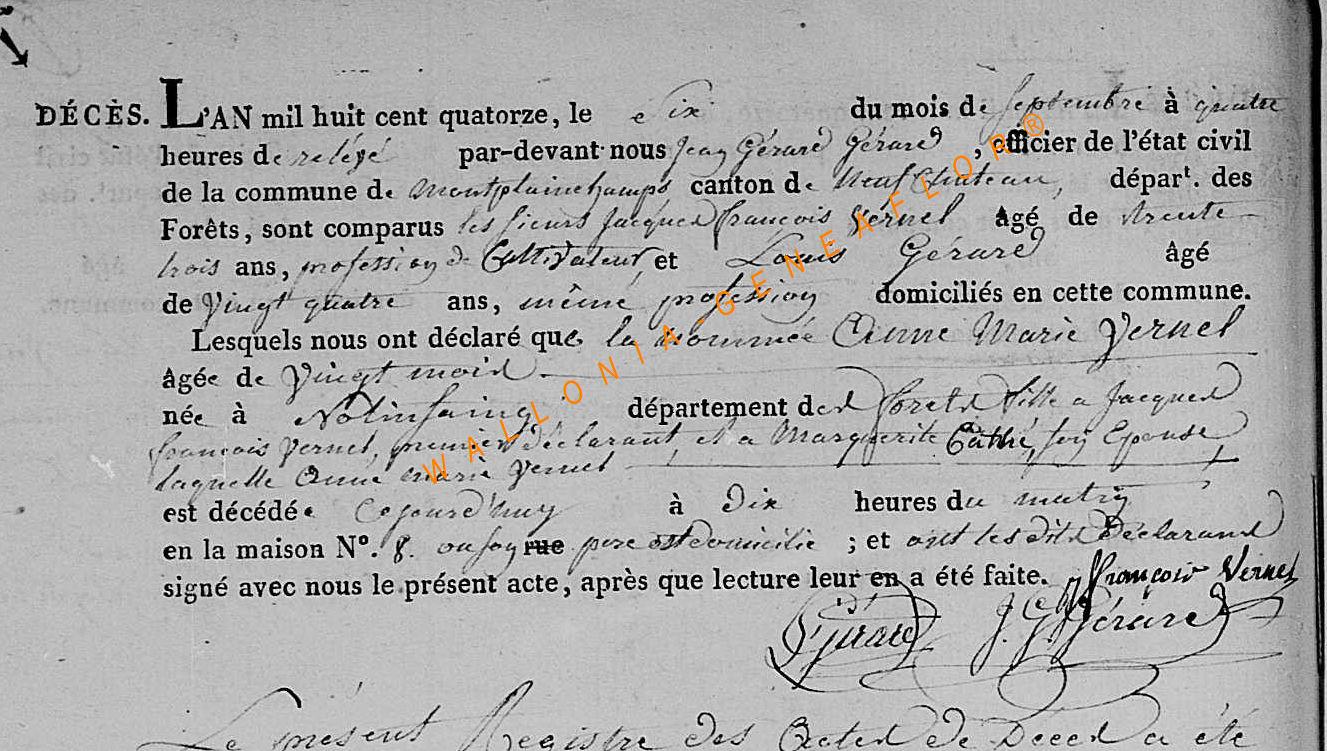 DÉCÈS. L'AN mil huit cent quatorze, le Six du mois de Septembre à quatre
heures de relevé par-devant nous Jean Gérard Gérard, officier de l'état civil
de la commune de Montplainchamps canton de Neufchateau, départ. des
Forêts, sont comparus les sieurs Jacques françois Vernel âgé de trente
trois ans, profession de Cultivateur, et Louis Gérard âgé
de Vingt quatre ans, même profession domiciliés en cette commune.
Lesquels nous ont déclaré que la nommée Anne Marie Vernel
âgée de Vingt mois
née à département des forets fille a Jacques
françois Vernel, premier déclarant, et a Marguerite son Epouse
laquelle Anne marie Vernel
est décédée Cejourd'huy à Dix heures du matin
en la maison N°. 8. ou son rue pere est domicilié ; et ont les dits Déclarans
signé avec nous le présent acte, après que lecture leur en a été faite. françois Vernel
L Gérard J. G. Gérard
Le présent Registre des Actes de Décès a été
WALLONIA-GENEAFLOR®